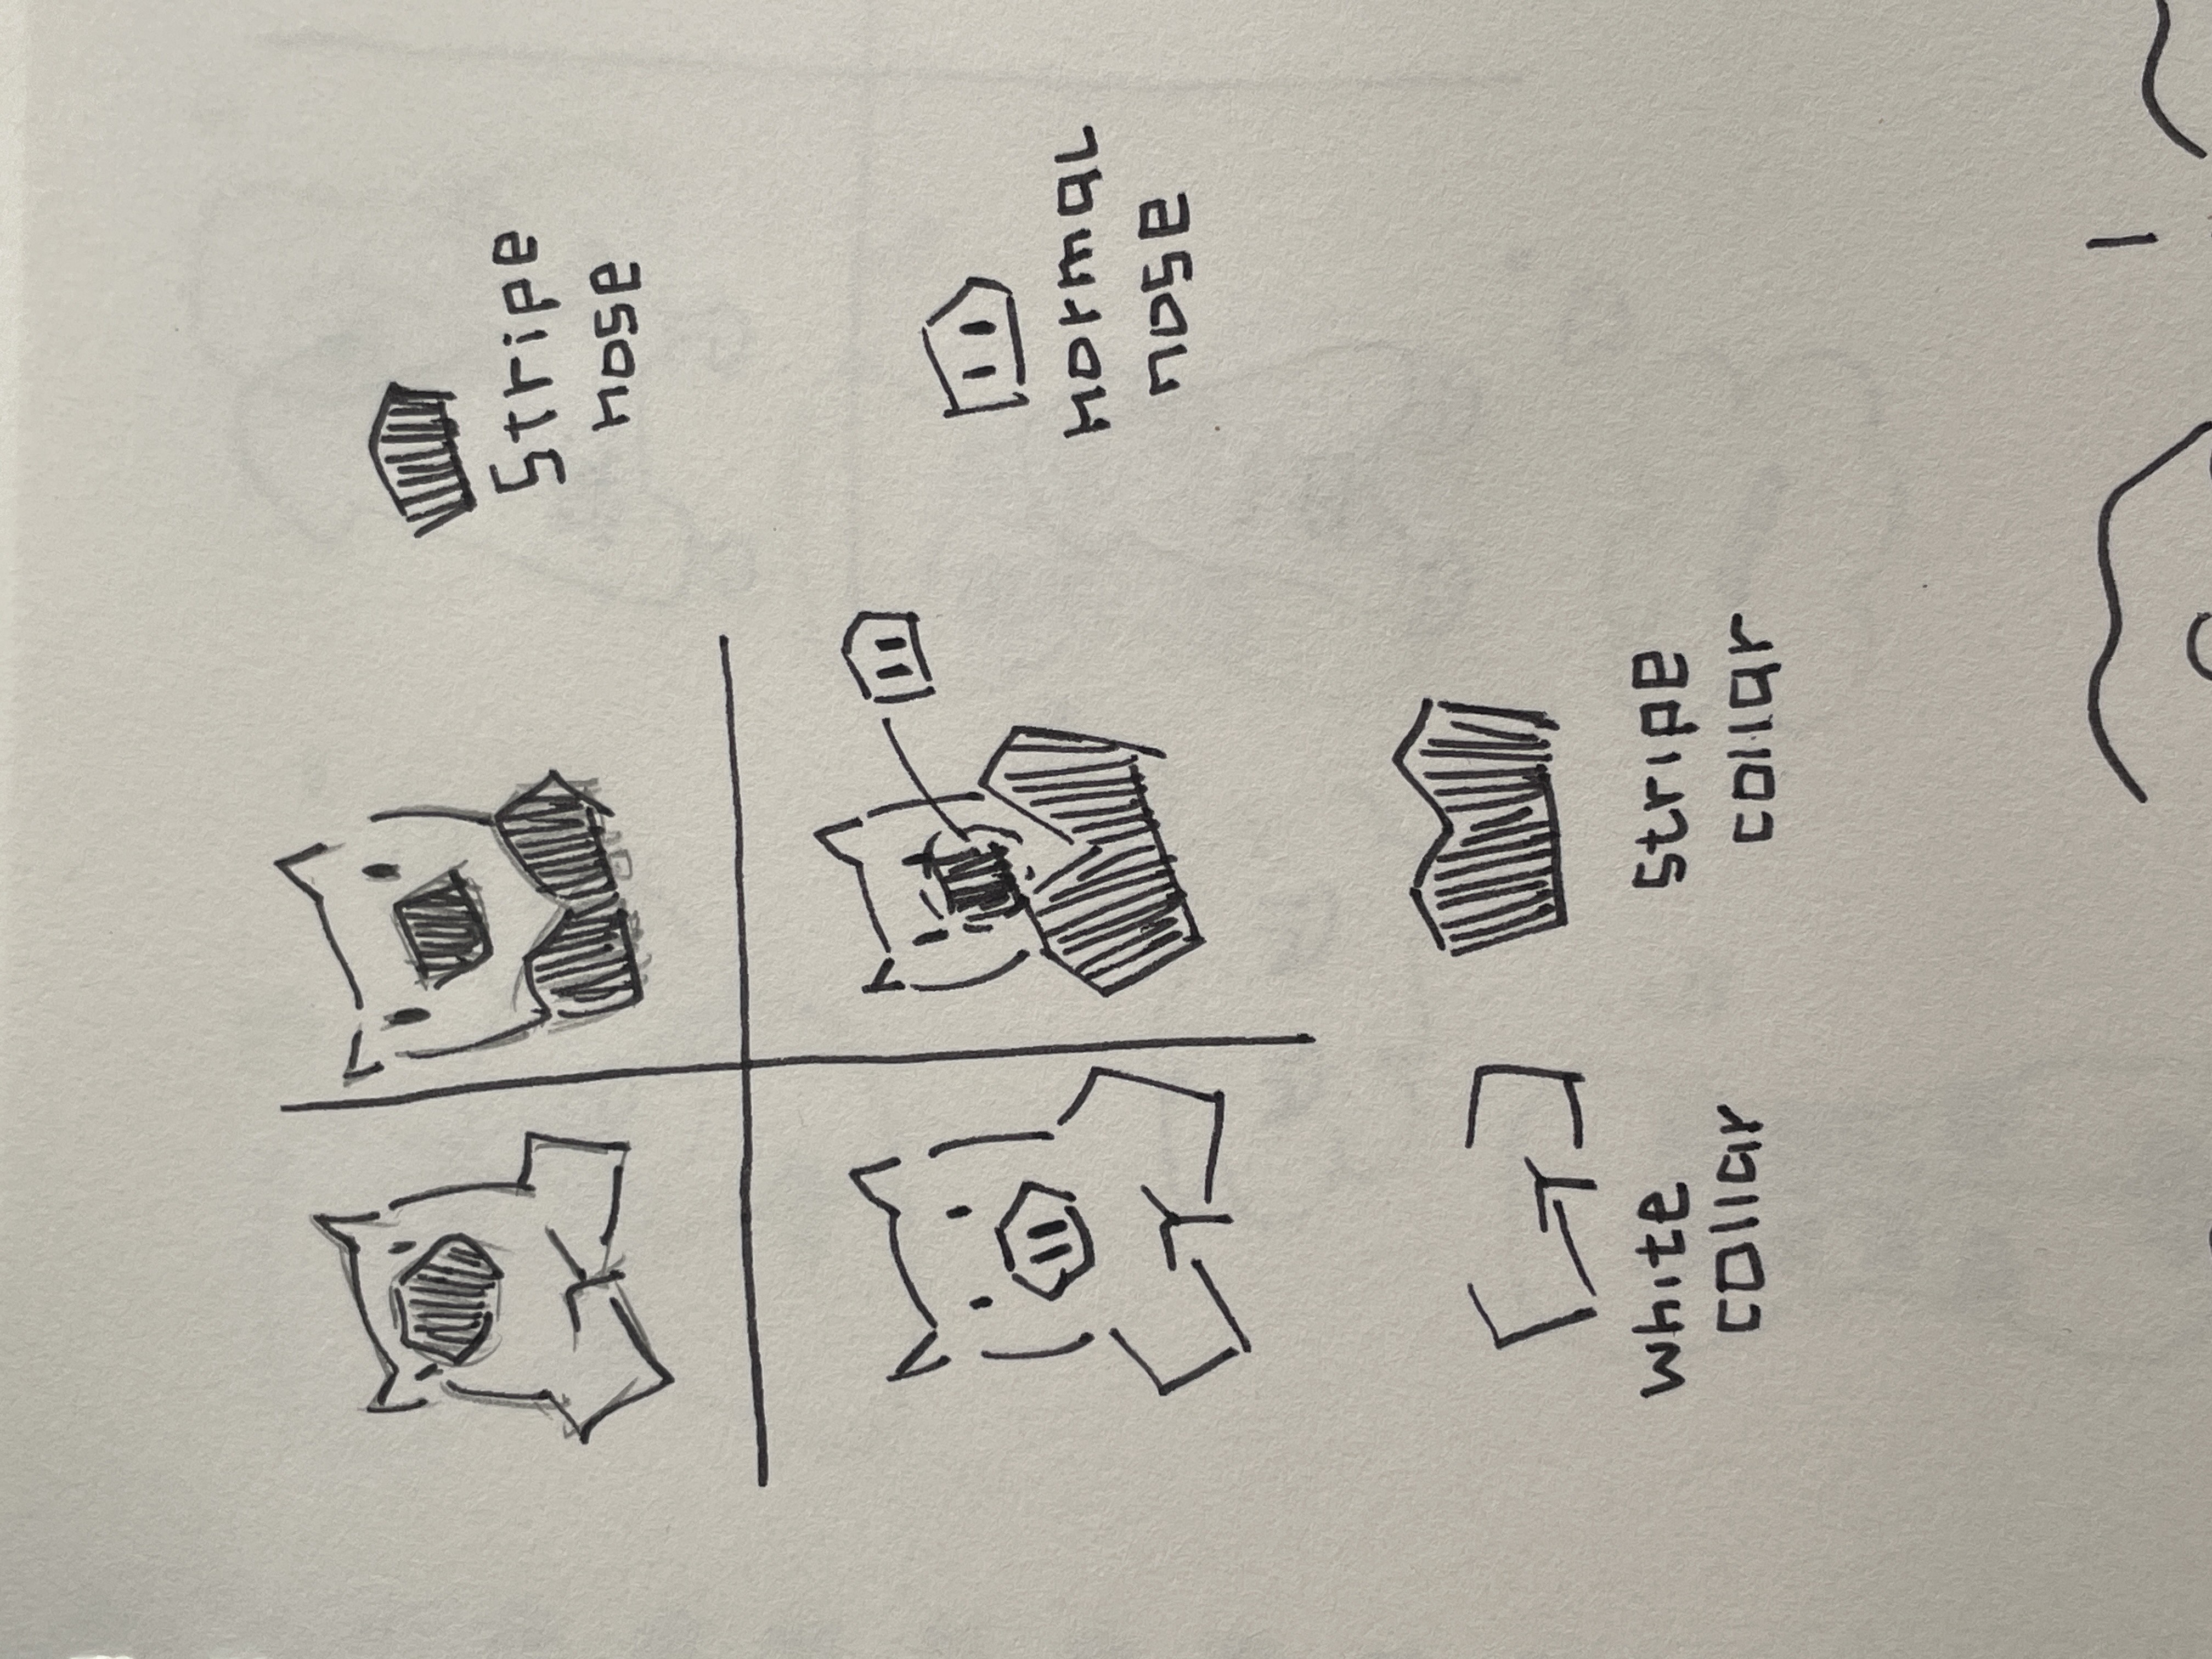 Stripe
nose
normal
nose
white
collar
stripe
collar